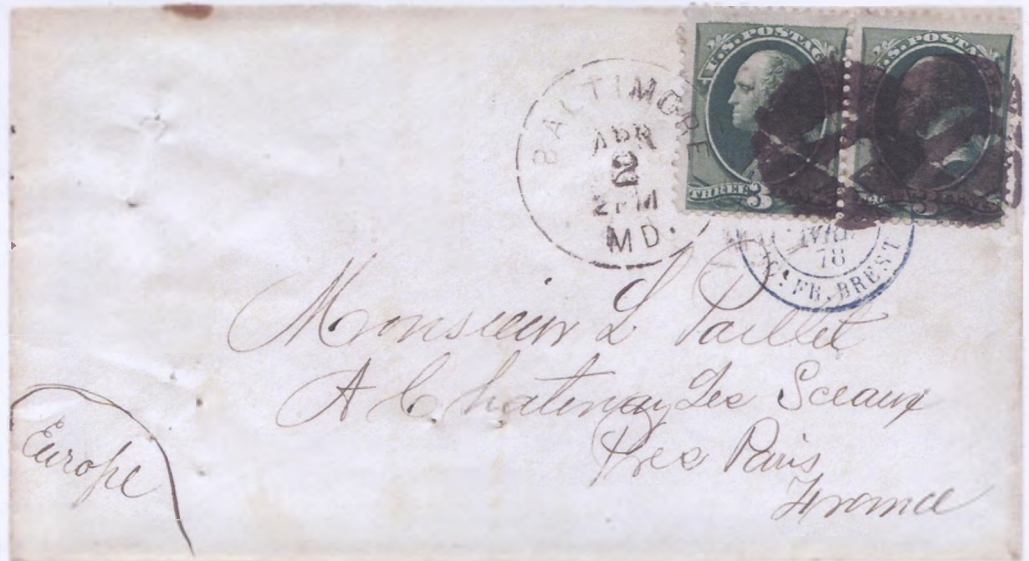 BALTIMORE
APR
2
2 PM
MD.
U.S. POSTAGE
THREE 3
U.S. POSTAGE
78
FR. BREST
Monsieur L Paillet
A Chatenay Les Sceaux
Pres Paris
France
Europe